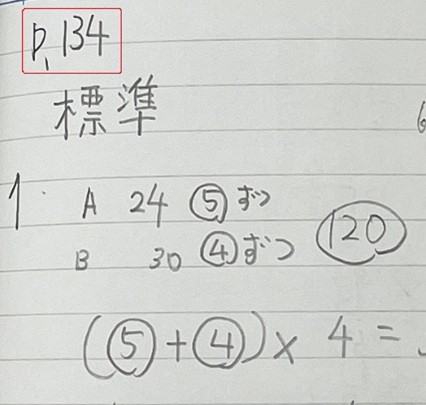 P.134
標準
1. A 24 ⑤ずつ
B 30 ④ずつ
120
(⑤+④)×4=